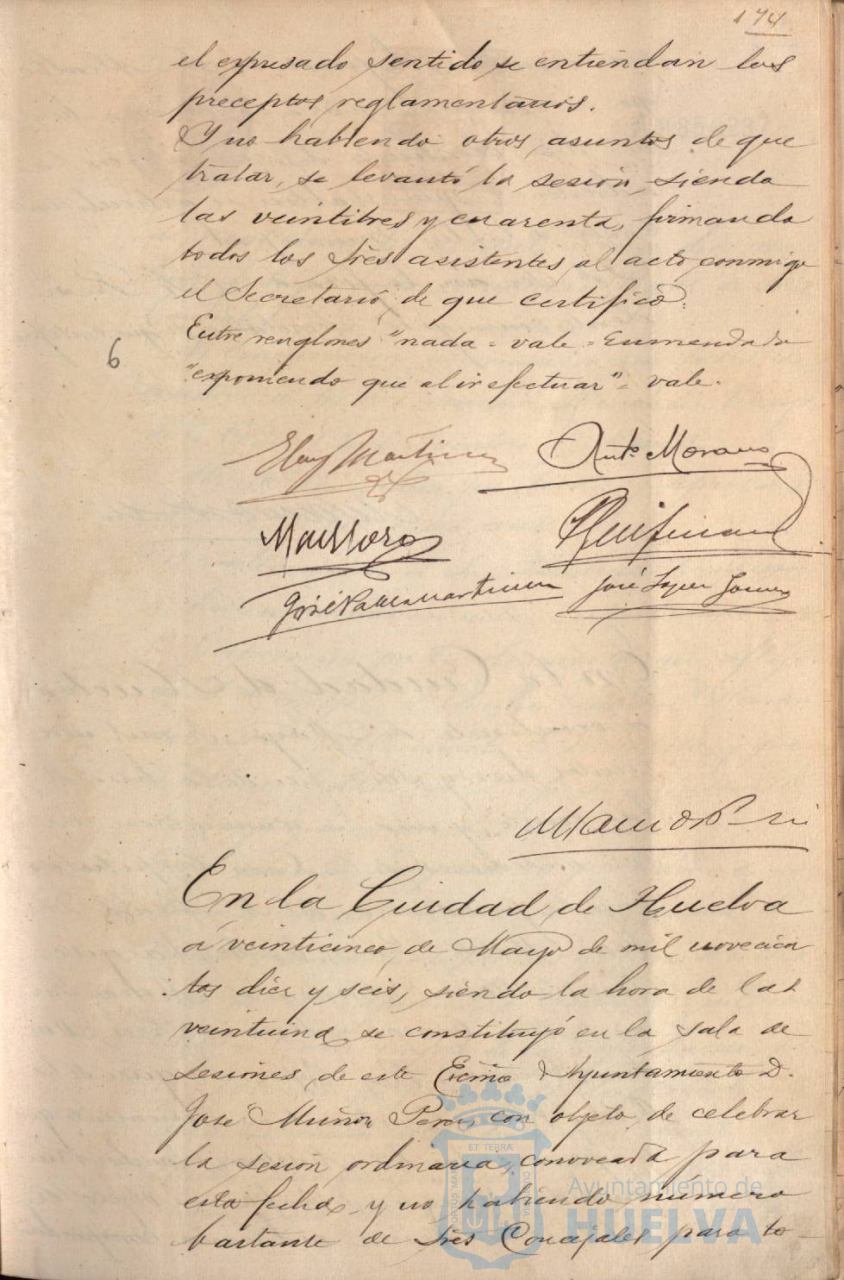 174
el expresado sentido se entiendan los
preceptos reglamentarios.
Y no habiendo otros asuntos de que
tratar, se levantó la sesión, siendo
las veintitres y cuarenta, firmando
todos los Sres asistentes al acto conmigo
el Secretario, de que certifico.
Entre renglones "nada = vale = Enmendado
6
"exponiendo que al ir efectuar" = vale.
Eloy Martinez
Antº Moreno
José Martinez
José Lopez Gomez
En la Ciudad de Huelva
á veinticinco de Mayo de mil novecien
tos diez y seis, siendo la hora de las
veintiuna se constituyó en la sala de
sesiones de este Excmo Ayuntamiento D.
José Muñoz Perez, con objeto de celebrar
la sesión ordinaria, convocada para
esta fecha, y no habiendo numero
bastante de Sres Concejales para to-
ET TERRÆ
Ayuntamiento de
HUELVA